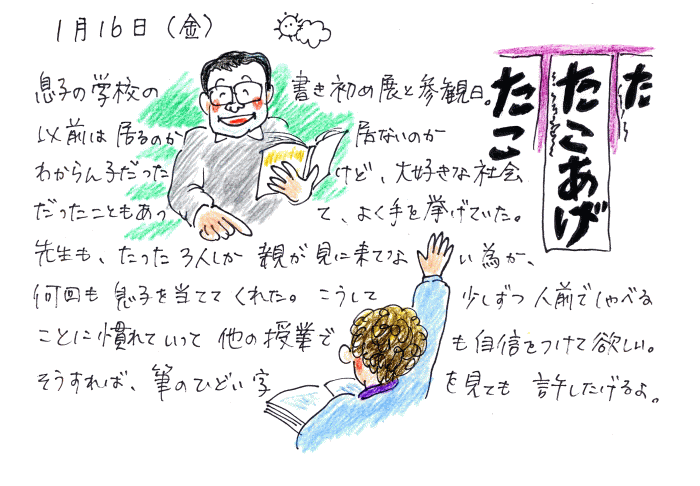 1月16日（金）
息子の学校の書き初め展と参観日。
以前は居るのか居ないのか
わからん子だったけど、大好きな社会
だったこともあって、よく手を挙げていた。
先生も、たった3人しか親が見に来てない為か、
何回も息子を当ててくれた。こうして少しずつ人前でしゃべる
ことに慣れていって他の授業でも自信をつけて欲しい。
そうすれば、筆のひどい字を見ても許したげるよ。
た
たこあげ
たこ